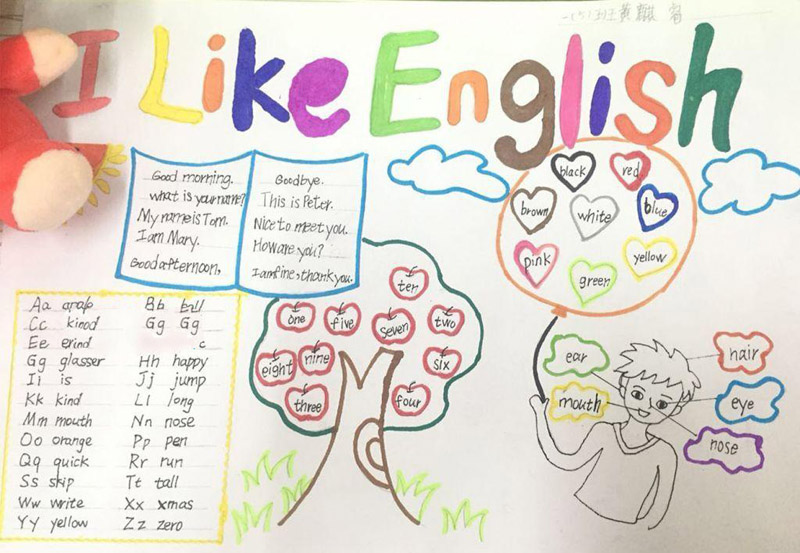 I Like English
Good morning.
what is your name?
My name is Tom.
I am Mary.
Good afternoon,
Goodbye.
This is Peter.
Nice to meet you.
How are you?
I am fine, thank you.
black
red
brown
white
blue
pink
green
yellow
ten
one
five
seven
two
eight
nine
six
three
four
Aa
Bb
Cc kinod
Gg Gg
Ee erind
c
Gg glasser
Hh happy
Ii is
Jj jump
Kk kind
Ll long
Mm mouth
Nn nose
Oo orange
Pp pen
Qq quick
Rr run
Ss skip
Tt tall
Ww write
Xx xmas
Yy yellow
Zz zero
ear
hair
mouth
eye
nose